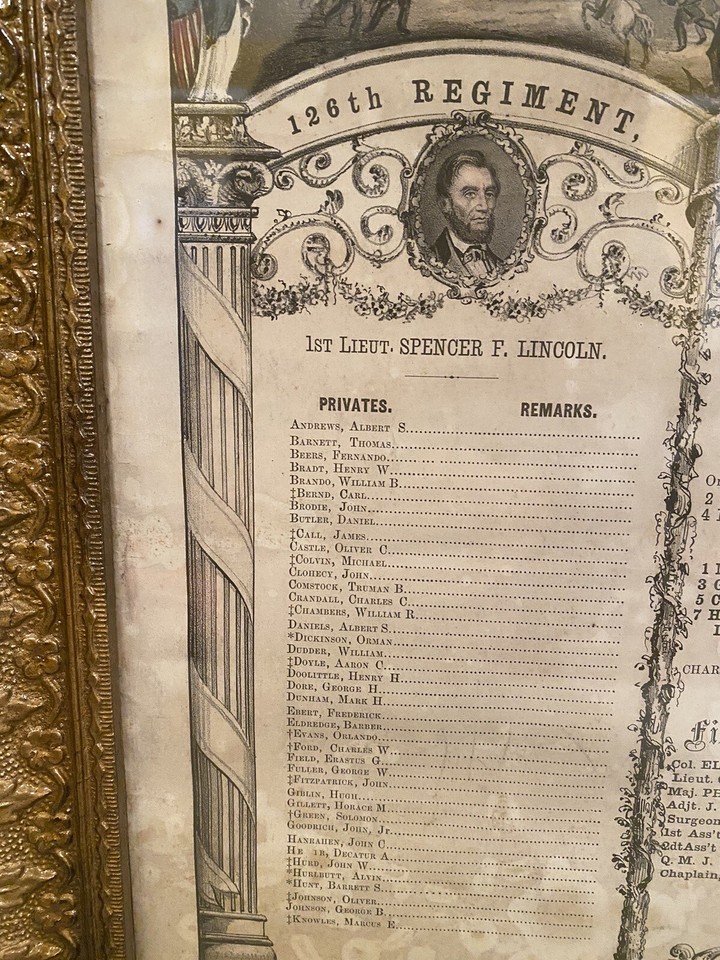 126th REGIMENT,
1ST LIEUT. SPENCER F. LINCOLN.
PRIVATES. REMARKS.
ANDREWS, ALBERT S.
BARNETT, THOMAS
BEERS, FERNANDO
BRADT, HENRY W.
BRANDO, WILLIAM B.
‡BERND, CARL
BRODIE, JOHN
BUTLER, DANIEL
‡CALL, JAMES
CASTLE, OLIVER C.
‡COLVIN, MICHAEL
CLOHECY, JOHN
COMSTOCK, TRUMAN B.
CRANDALL, CHARLES C.
‡CHAMBERS, WILLIAM R.
DANIELS, ALBERT S.
*DICKINSON, ORMAN
DUDDER, WILLIAM
‡DOYLE, AARON C.
DOOLITTLE, HENRY H.
DORE, GEORGE H.
DUNHAM, MARK H.
EBERT, FREDERICK
ELDREDGE, BARBER
†EVANS, ORLANDO
†FORD, CHARLES W.
FIELD, ERASTUS G.
FULLER, GEORGE W.
‡FITZPATRICK, JOHN
GIBLIN, HUGH
GILLETT, HORACE M.
†GREEN, SOLOMON
GOODRICH, JOHN, Jr.
HANRAHEN, JOHN C.
DECATUR A.
‡HURD, JOHN W.
*HURLBUTT, ALVIN
*HUNT, BARRETT S.
‡JOHNSON, OLIVER
JOHNSON, GEORGE B.
‡KNOWLES, MARCUS E.
2
4
1
3
5
7
Col.
Lieut.
Maj.
Adjt. J.
Surgeon
1st Ass't
2dt Ass't
Q. M. J.
Chaplain,